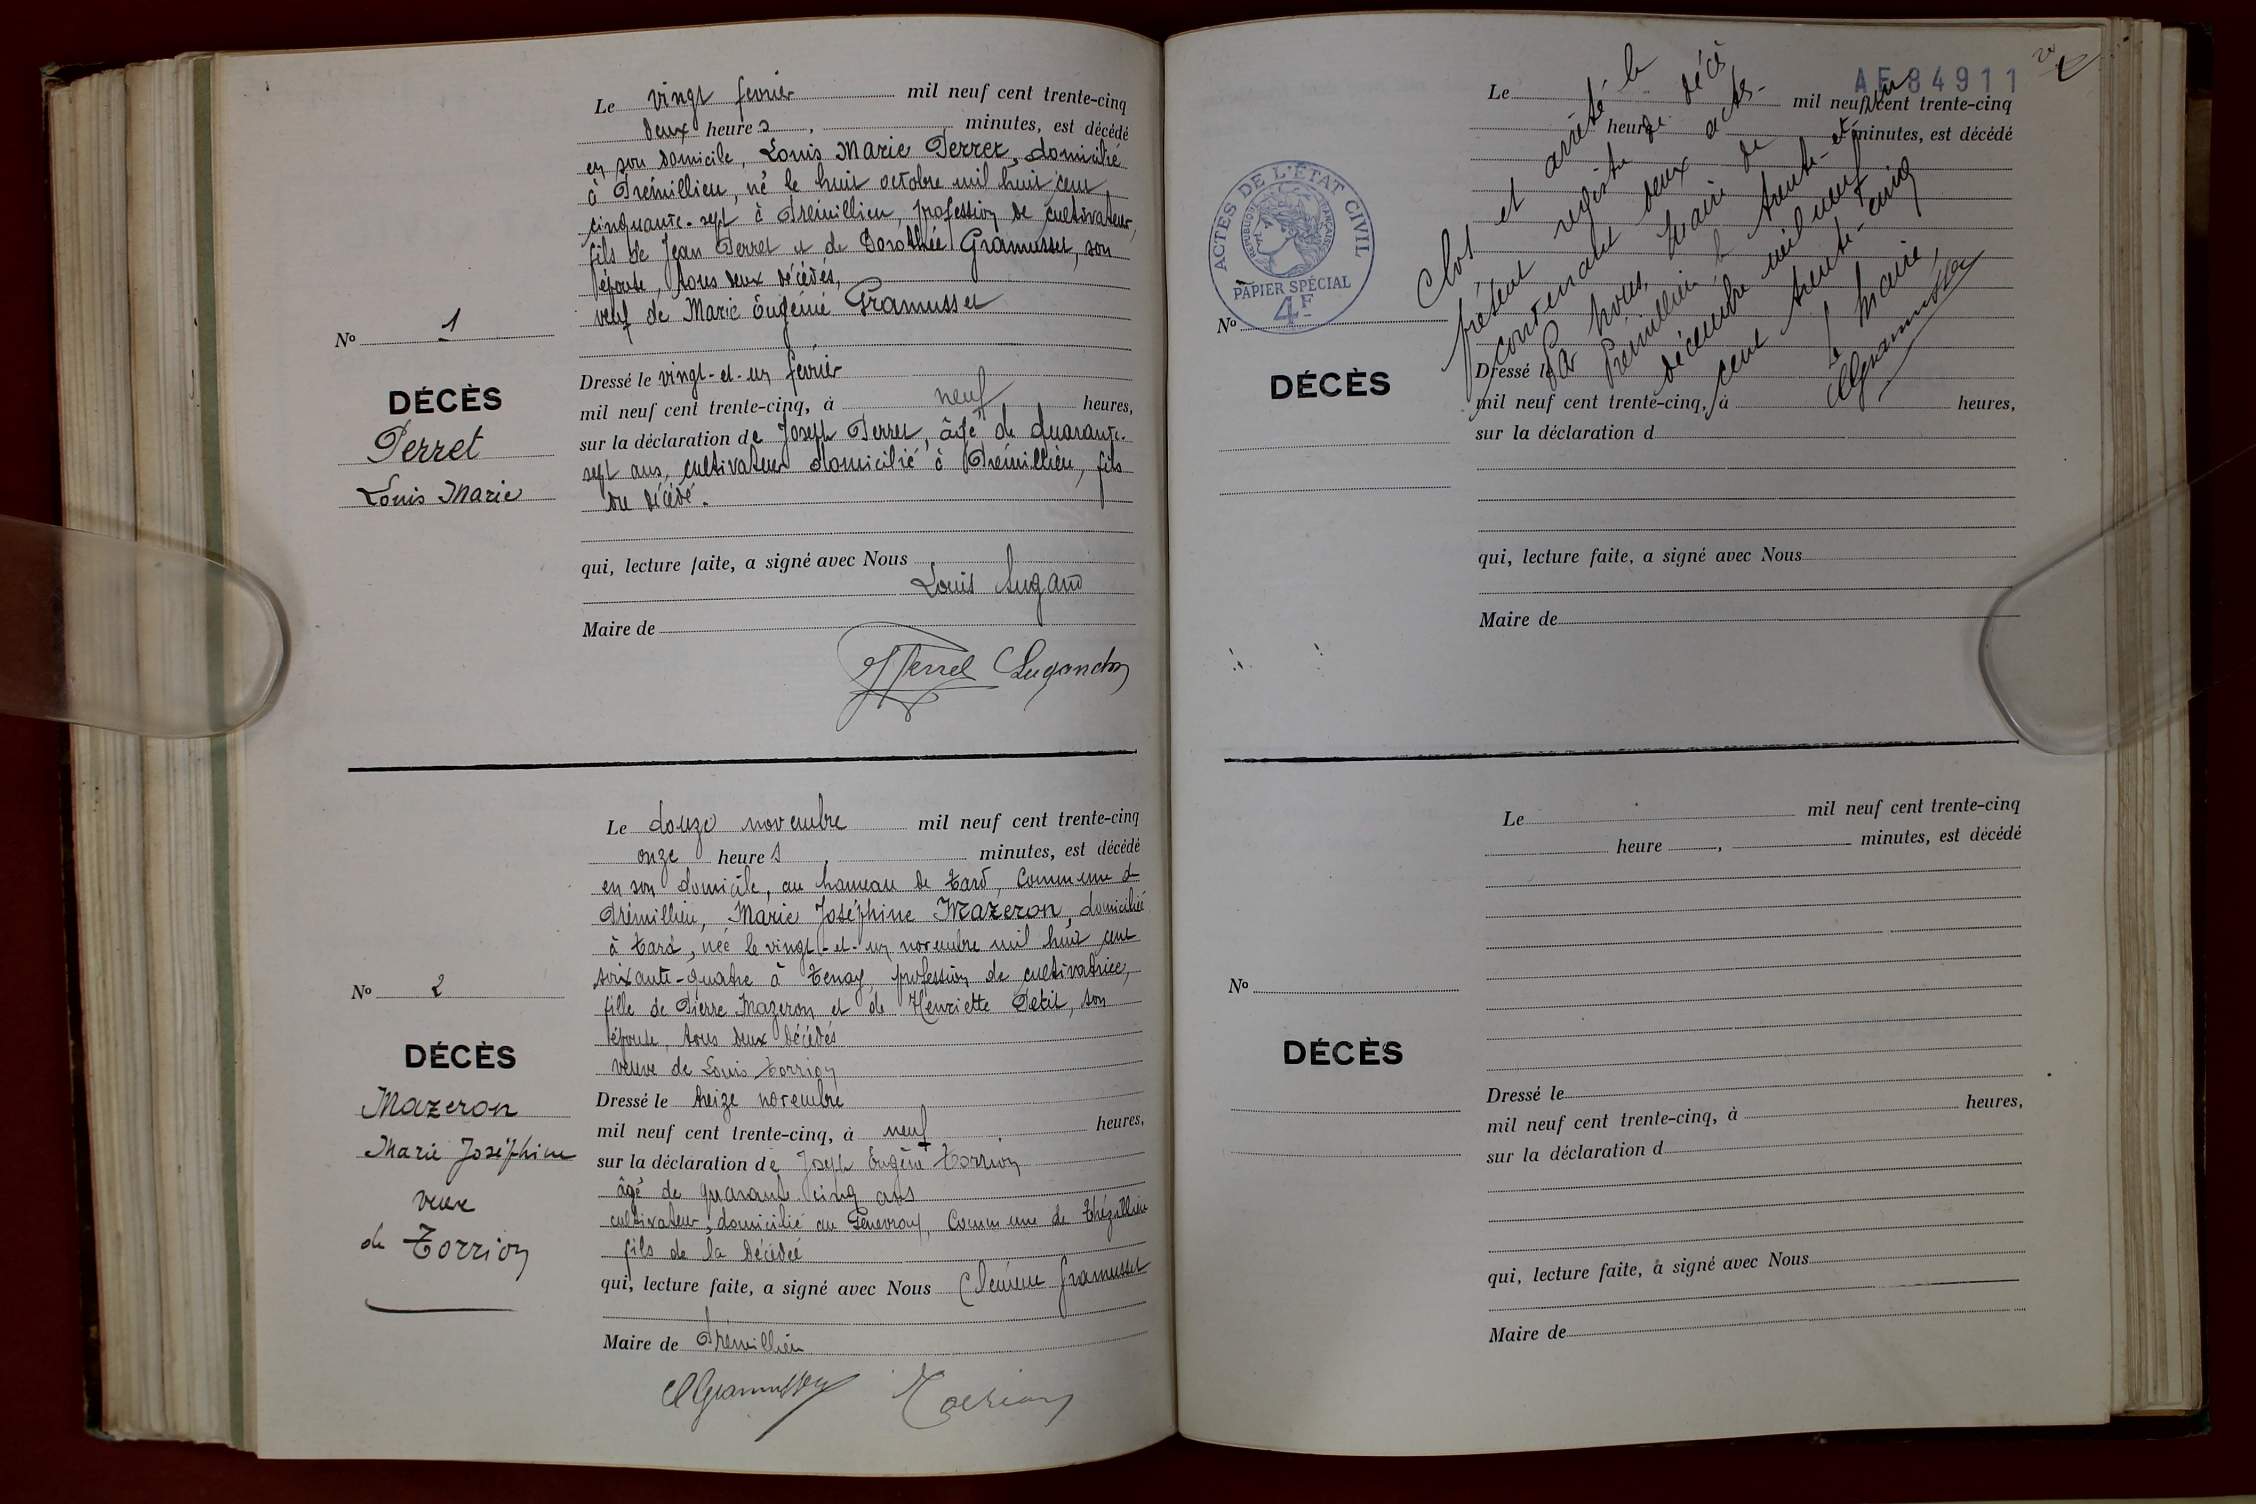 Le vingt fevrier mil neuf cent trente-cinq
deux heures, minutes, est décédé
en son domicile, Louis Marie Perret, domicilié
à Prémillieu, né le huit octobre mil huit cent
cinquante-sept à Prémillieu, profession de cultivateur,
fils de Jean Perret et de Dorothée Gramusset, son
épouse, tous deux décédés,
veuf de Marie Eugénie Gramusset
No 1
DÉCÈS
Perret
Louis Marie
Dressé le vingt-et-un février
mil neuf cent trente-cinq, à neuf heures,
sur la déclaration de Joseph Perret, âgé de quarante-
sept ans, cultivateur domicilié à Prémillieu, fils
du décédé.
qui, lecture faite, a signé avec Nous
Louis Lugand
Maire de
Perret Lugand
Le douze novembre mil neuf cent trente-cinq
onze heures, minutes, est décédé
en son domicile, au hameau de Tard, Commune de
Prémillieu, Marie Joséphine Mazeron, domiciliée
à Tard, née le vingt-et-un novembre mil huit cent
soixante-quatre à Tenay, profession de cultivatrice,
fille de Pierre Mazeron et de Henriette Petit, son
épouse, tous deux décédés
veuve de Louis Torrion
No 2
DÉCÈS
Mazeron
Marie Joséphine
veuve
de Torrion
Dressé le treize novembre
mil neuf cent trente-cinq, à neuf heures,
sur la déclaration de Joseph Eugène Torrion
âgé de quarante cinq ans
cultivateur, domicilié au Genevroux, Commune de Thézillieu
fils de la décédée
qui, lecture faite, a signé avec Nous Clément Gramusset
Maire de Prémillieu
Gramusset Torrion
AF 84911
Le mil neuf cent trente-cinq
heure minutes, est décédé
ACTES DE L'ÉTAT CIVIL
RÉPUBLIQUE FRANÇAISE
PAPIER SPÉCIAL
4F
Clos et arrêté le
présent registre de décès
contenant deux actes
Par Nous, Maire de
Prémillieu le trente-et-un
décembre mil neuf
cent trente-cinq
Le Maire,
Gramusset
No
DÉCÈS
Dressé le
mil neuf cent trente-cinq, à heures,
sur la déclaration d
qui, lecture faite, a signé avec Nous
Maire de
Le mil neuf cent trente-cinq
heure, minutes, est décédé
No
DÉCÈS
Dressé le
mil neuf cent trente-cinq, à heures,
sur la déclaration d
qui, lecture faite, a signé avec Nous
Maire de